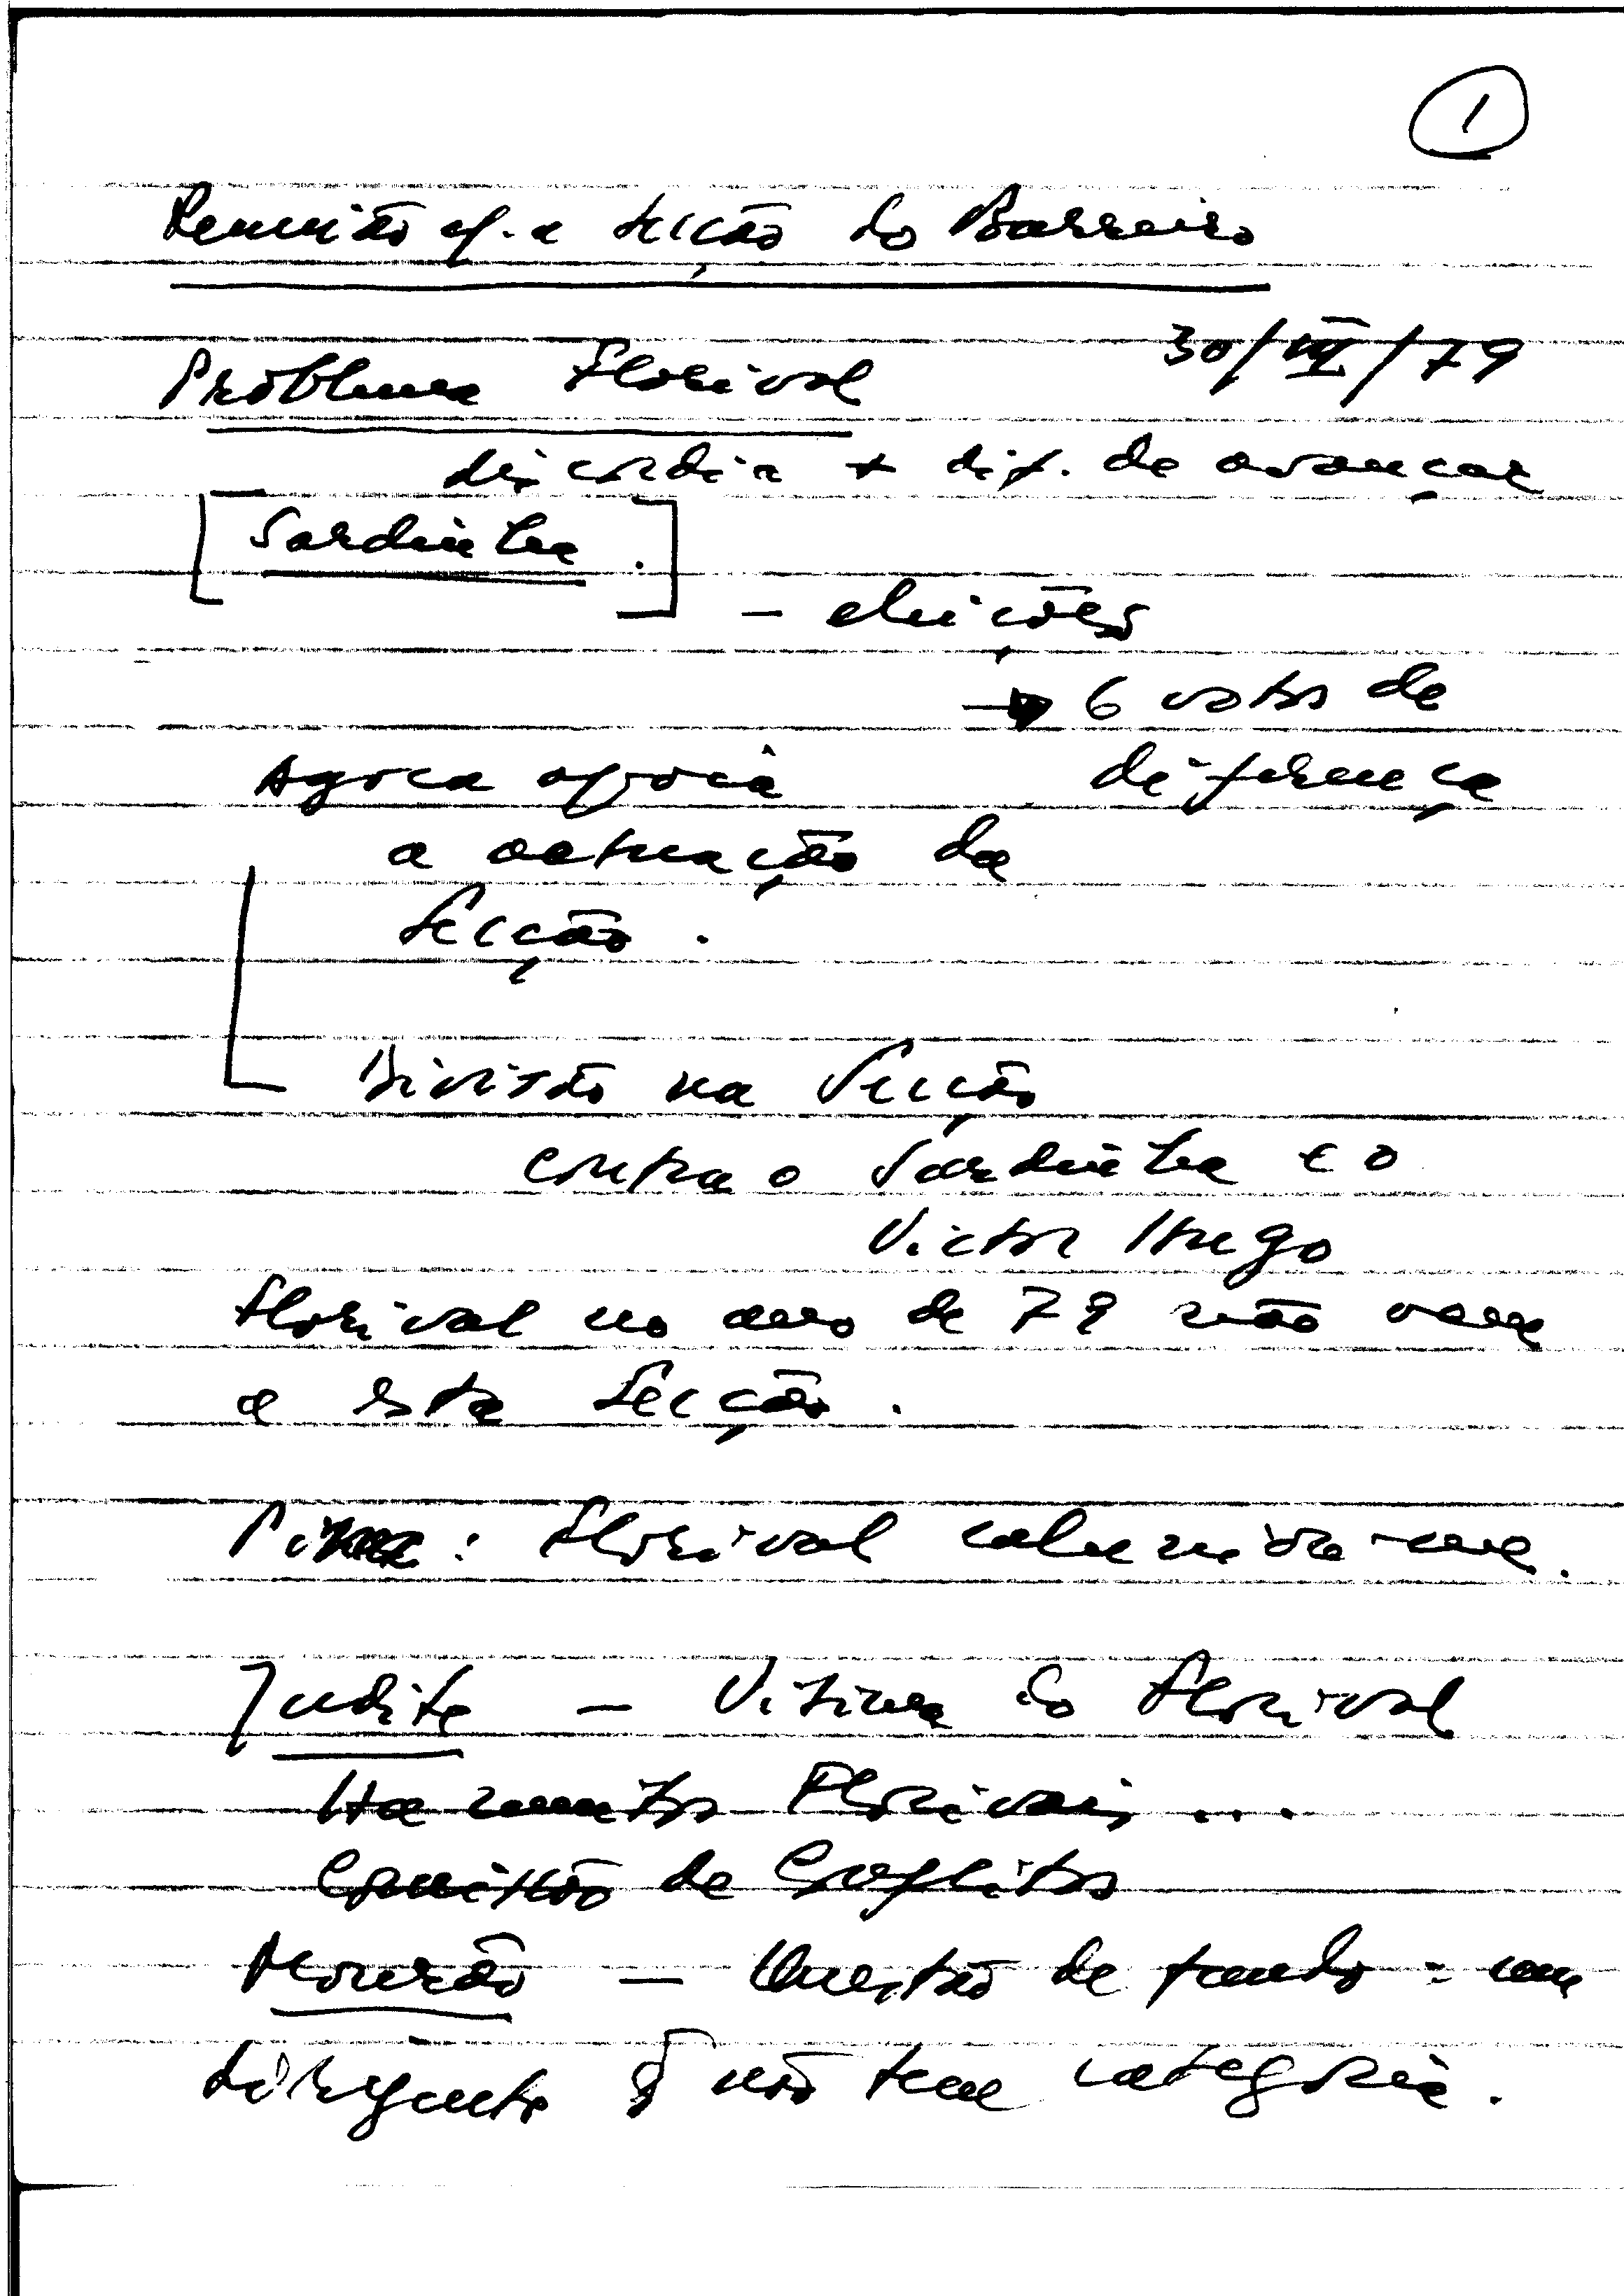 1
Reunião c/. a secção do Barreiro
30/VII/79
Problema Florival
discordia + dif. de avançar
[Sardinha.]
- eleições
→ 6 votos de
diferença
Agora apoia
a actuação da
Secção.
Divisão na Secção
contra o Sardinha e o
Victor Hugo
Florival no ano de 79 não vem
a esta Secção.
: Florival calunia-me.
Judite - Vitima do Florival
Ha muitos Florivais...
Comissão de Conflitos
Mourão - Questão de fundo: um
dirigente q não tem categoria.